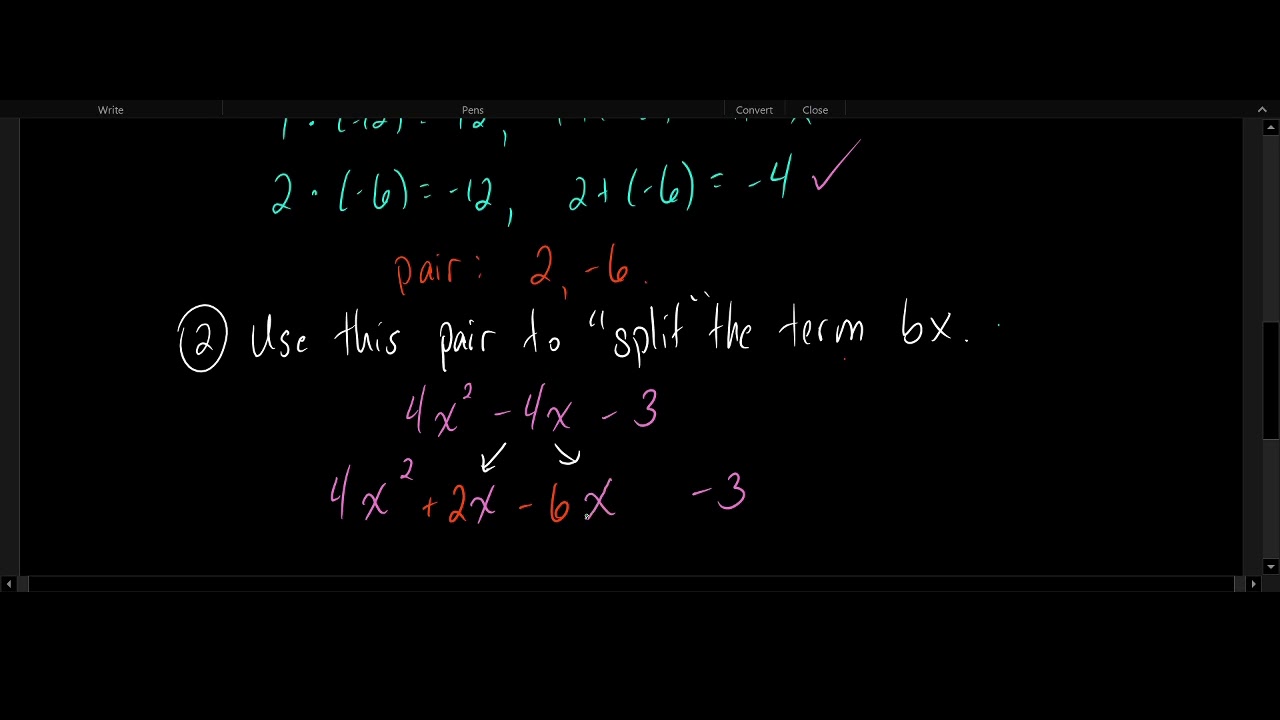 Write Pens Convert Close
2 · (-6) = -12, 2+(-6) = -4 ✓
pair: 2, -6.
② Use this pair to “split” the term bx.
4x² - 4x - 3
4x² + 2x - 6x - 3